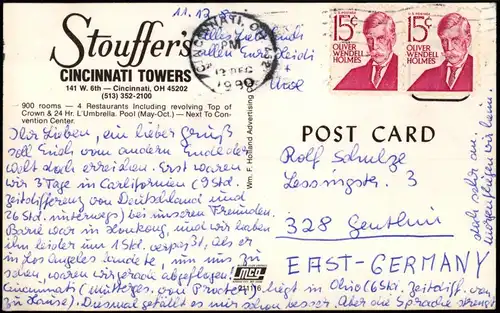 11.12.
Stouffer's
CINCINNATI TOWERS
141 W. 6th — Cincinnati, OH 45202
(513) 352-2100
900 rooms — 4 Restaurants Including revolving Top of
Crown & 24 Hr. L'Umbrella. Pool (May-Oct.) — Next To Con-
vention Center.
Ihr Lieben, ein lieber Gruß
soll Euch vom andern Ende der
Welt doch erreichen. Erst waren
wir 3 Tage in Carlifornien (9 Std.
Zeitdifferenz von Deutschland und
26 Std. unterwegs) bei unseren Freunden.
war in Honkong, und wir haben
ihn leider um 1 Std. verpaßt, als er
in Los Angeles landete, um uns zu
sehen, waren wir gerade abgeflogen.
Cincinnati (mütterges. von Procter) liegt in Ohio (6 Std. Zeitdiff. von
zu Hause). Diesmal gefällt es mir schon besser. Aber die Sprache strengt
sich sehr an
morgen fliegen wir heim.
alles Liebe
allen Eure Heidi
+
CINCINNATI, OH
PM
12 DEC
1980
15¢
OLIVER
WENDELL
HOLMES
15¢
OLIVER
WENDELL
HOLMES
Wm. F. Holland Advertising
mcg
POST CARD
Rolf Schulze
Lessingstr. 3
328 Genthin
EAST-GERMANY